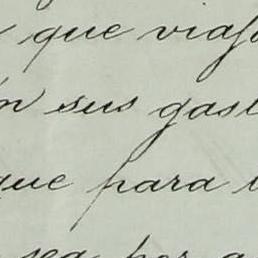 que viaja
sus gast
que para
sea por a